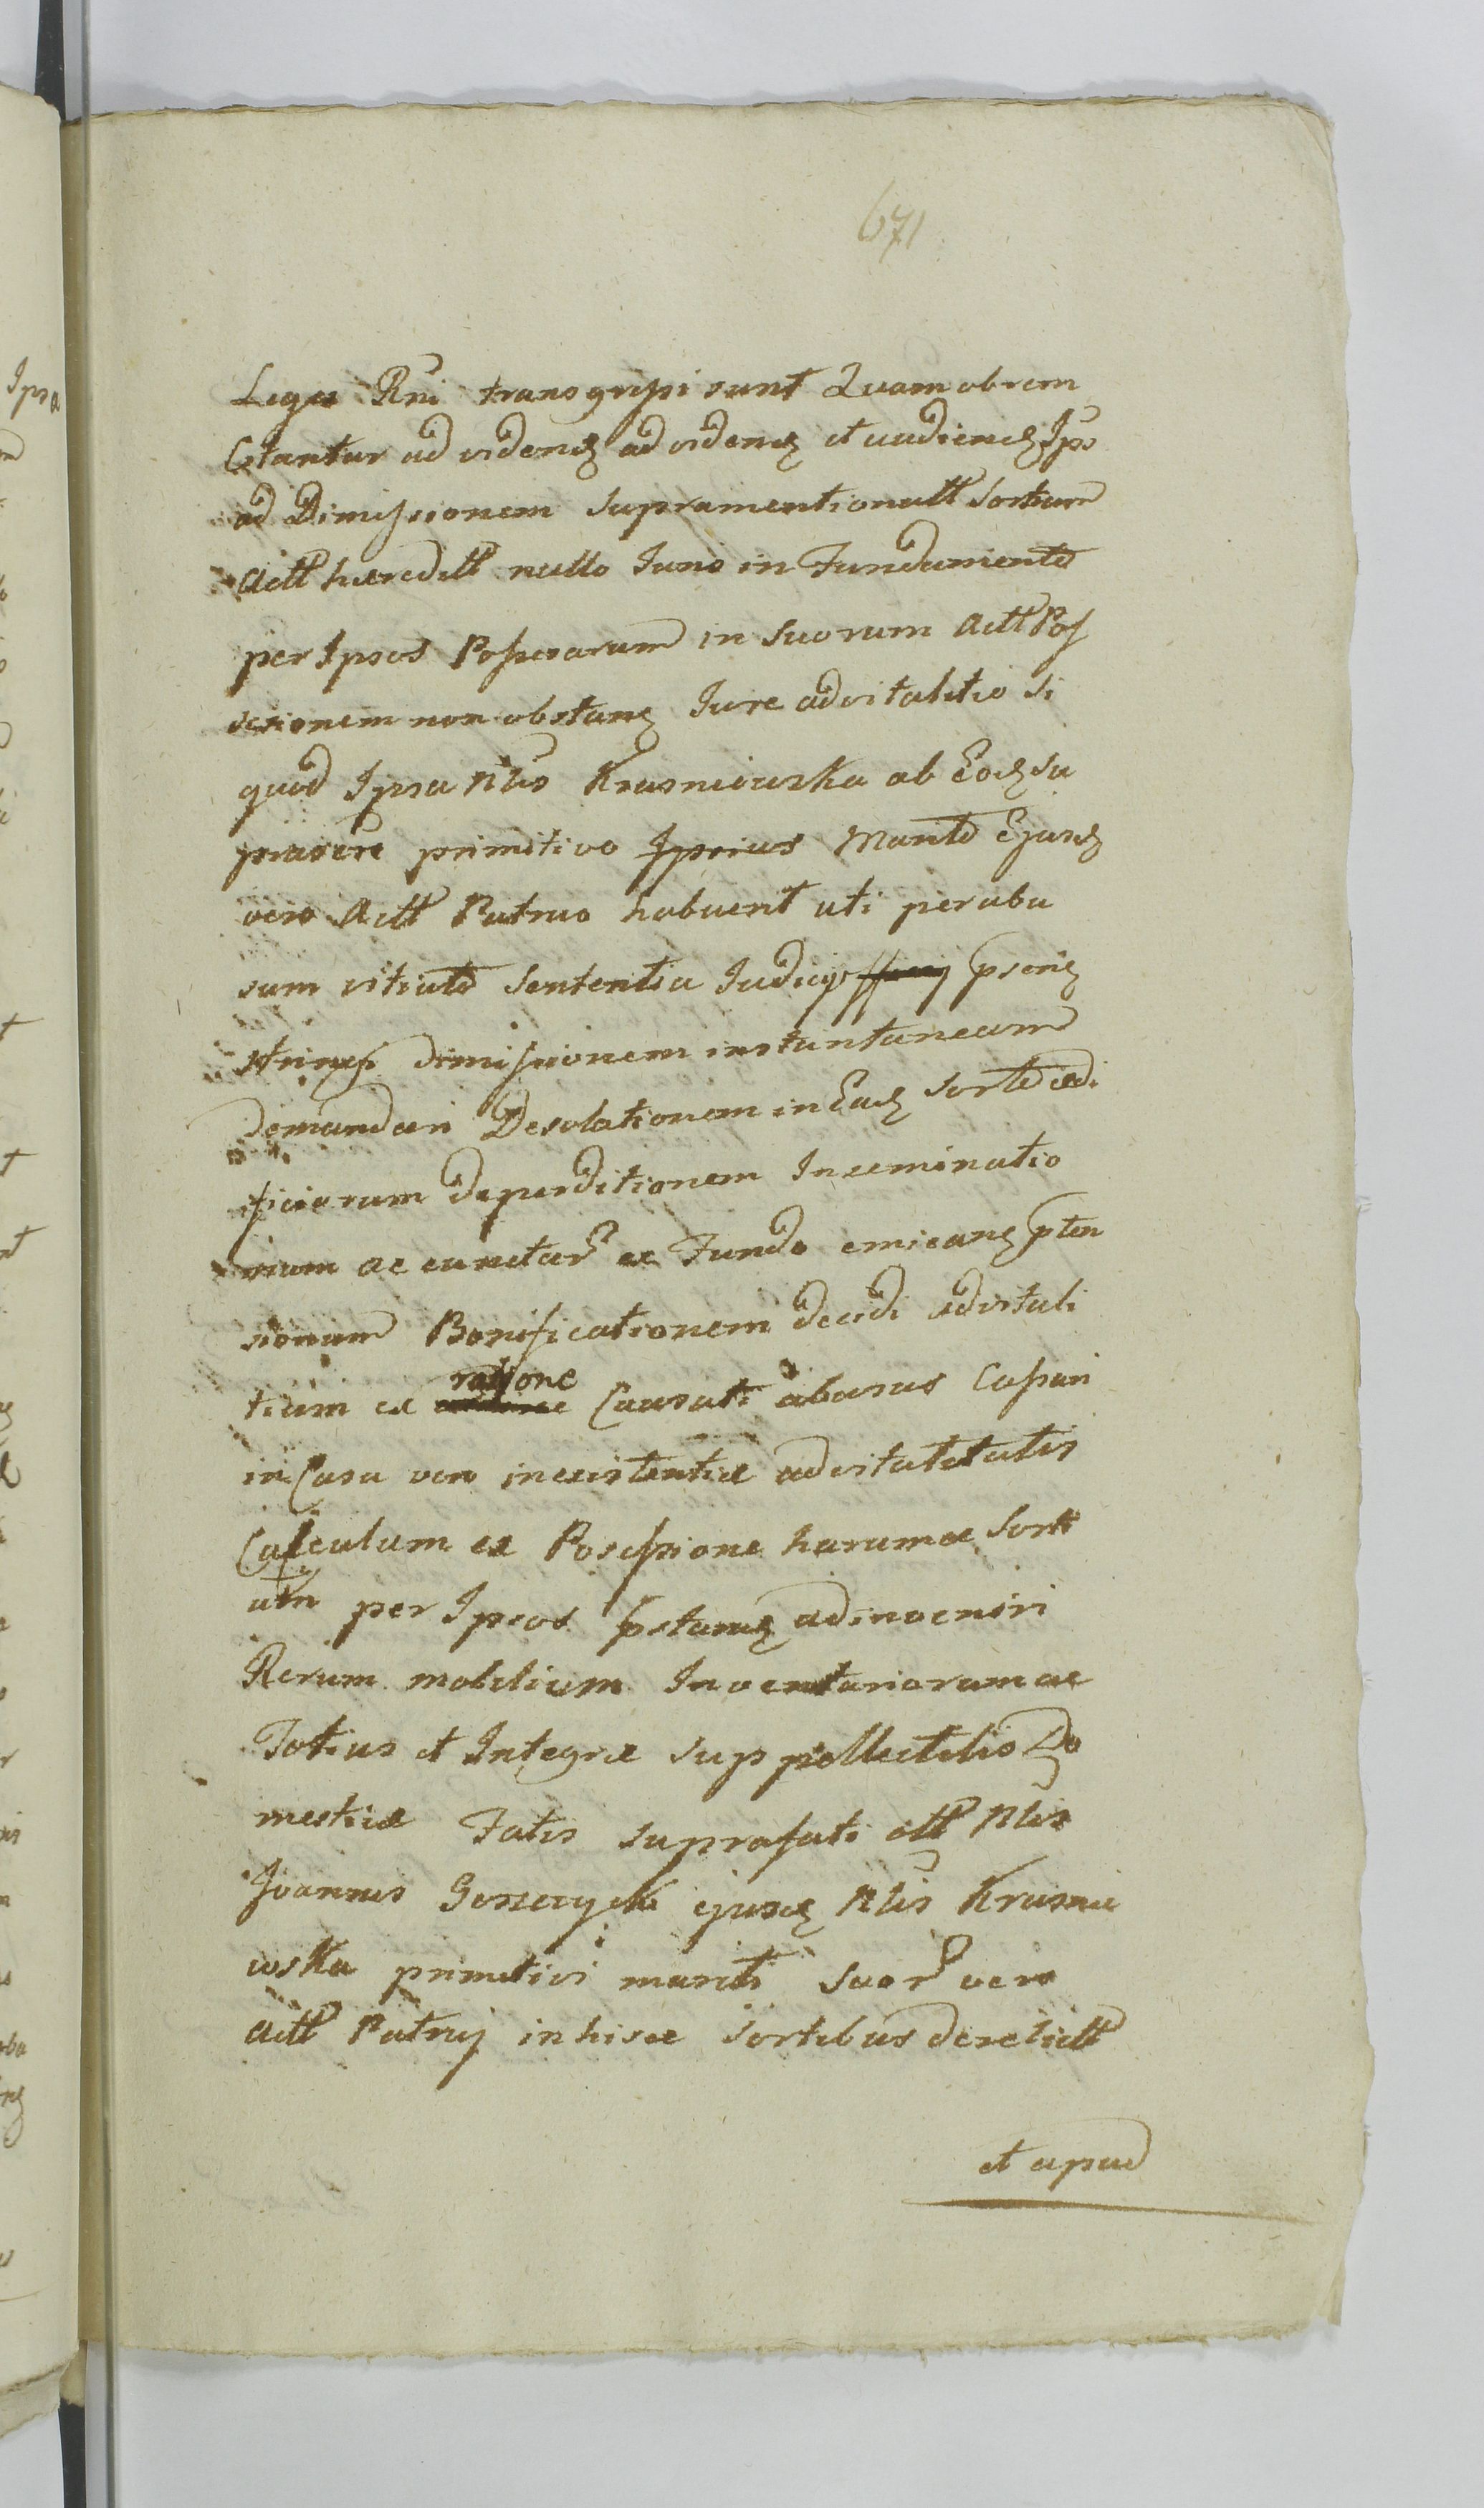 671
Leges Rni transgressi sunt Quamobrem
Citantur ad videndȝ ad videndȝ et audiendȝ Ips
ad Dimissionem supramentionatt Sortium
Actt hæreditt nullo Juris in Fundamento
per Ipsos Possessarum in suorum Actt Pos
sesionem non obstanȝ Jure advitalitio si
quod Ipsa Nlis Krasniewska ab Eodȝ su
praviri primitivo Ipsius Marito Ejusdȝ
vero Actt Patruo habuerit uti per abu
sum vitiato Sententia Judicy pserȝ
dimissionem instantaneam
demandari Desolationem in Eadȝ Sorte ædi
ficiorum deperditionem Inseminatio
num ac cunctar ex Fundo emicanȝ pten
sionum Bonificationem decidi advitali
tium ex ratione Causati abusus Cassari
in Casu vero inexistentiæ advitalitatis
Calculum ex Possessione harumce Sortt
utn per Ipsos pstandȝ adinveniri
Rerum mobilium Inventariorum ac
Totius et Integræ suppellectilis Do
mesticæ Fatis suprafati ott Nlis
Joannis Goreczycki ejusdȝ Nlis Krasnie
wska primitivi mariti suor vero
Actt Patruj in hisce sortibus derelictt
et apud
Ipsa